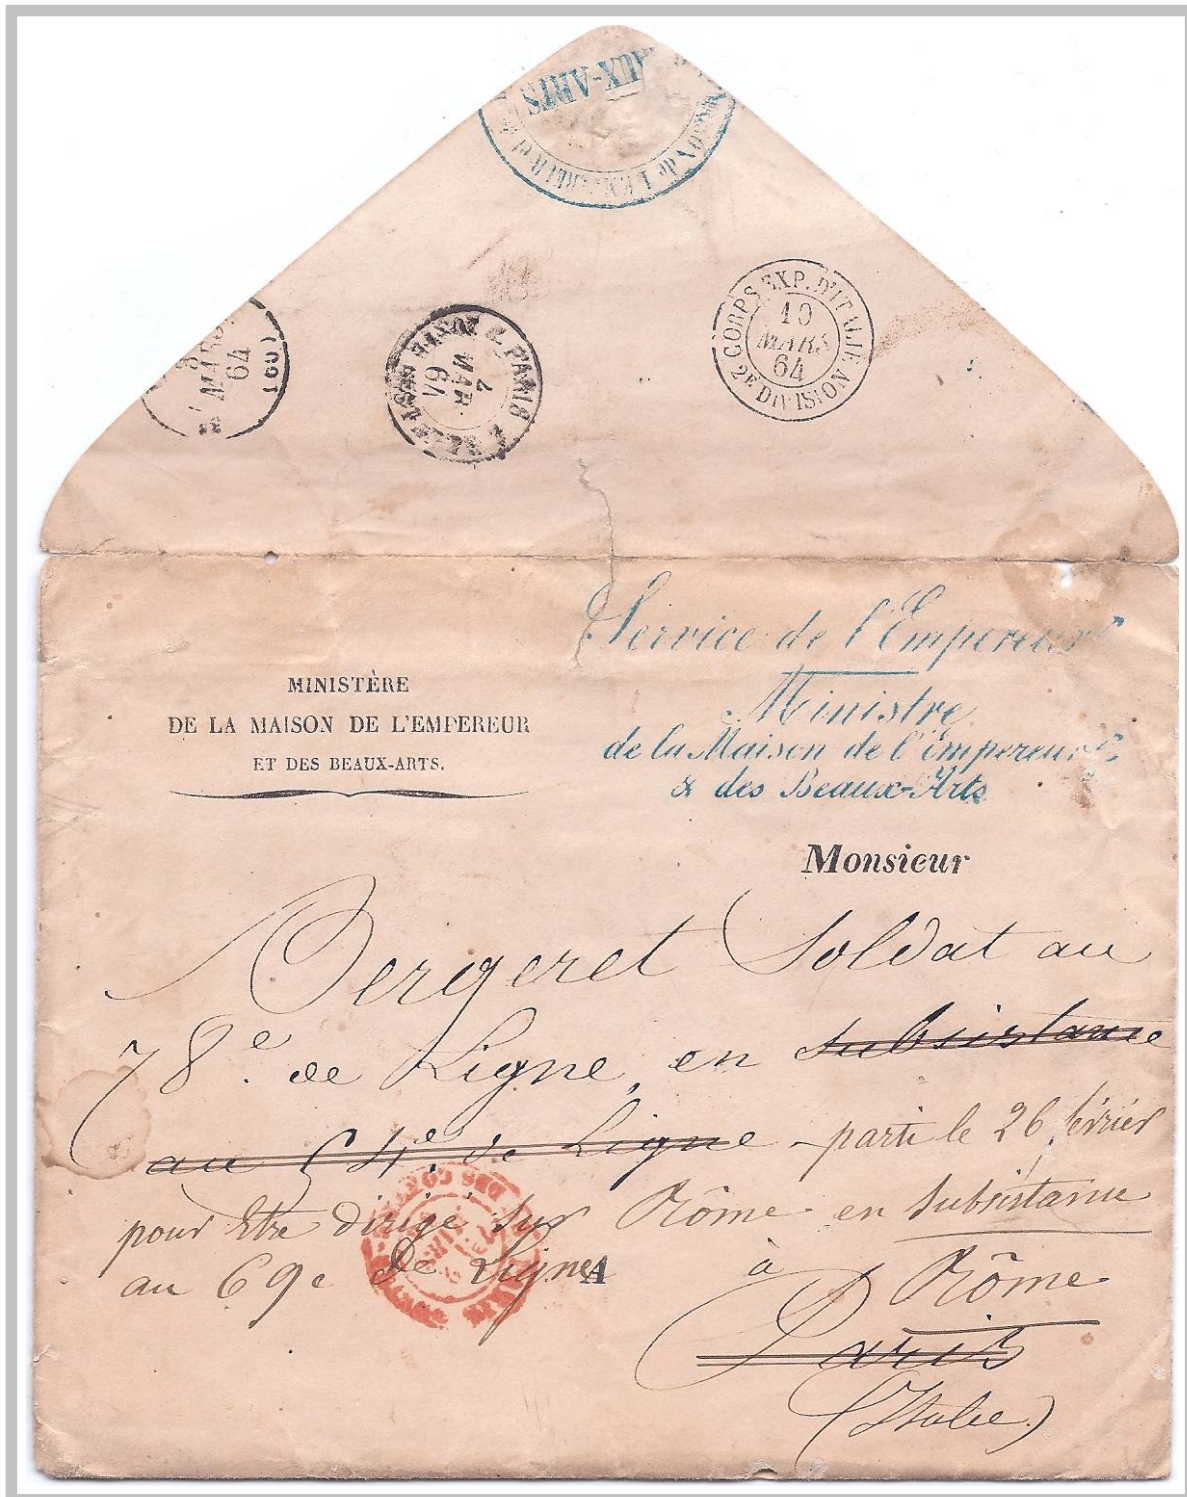 MAISON de L'EMPEREUR et de
AUX-ARTS
CORPS EXP. D'ITALIE
10
MARS
64
2E DIVISION
PARIS
7
MARS
64
MARS
64
Service de l'Empereur
MINISTÈRE
DE LA MAISON DE L'EMPEREUR
ET DES BEAUX-ARTS.
Ministre
de la Maison de l'Empereur
& des Beaux-Arts
Monsieur
Bergeret Soldat au
78e de Ligne, en subsistance
au 54e de Ligne - parti le 26 février
pour être dirigé sur Rôme en subsistance
au 69e de Ligne A à Rôme
Paris
(Italie)